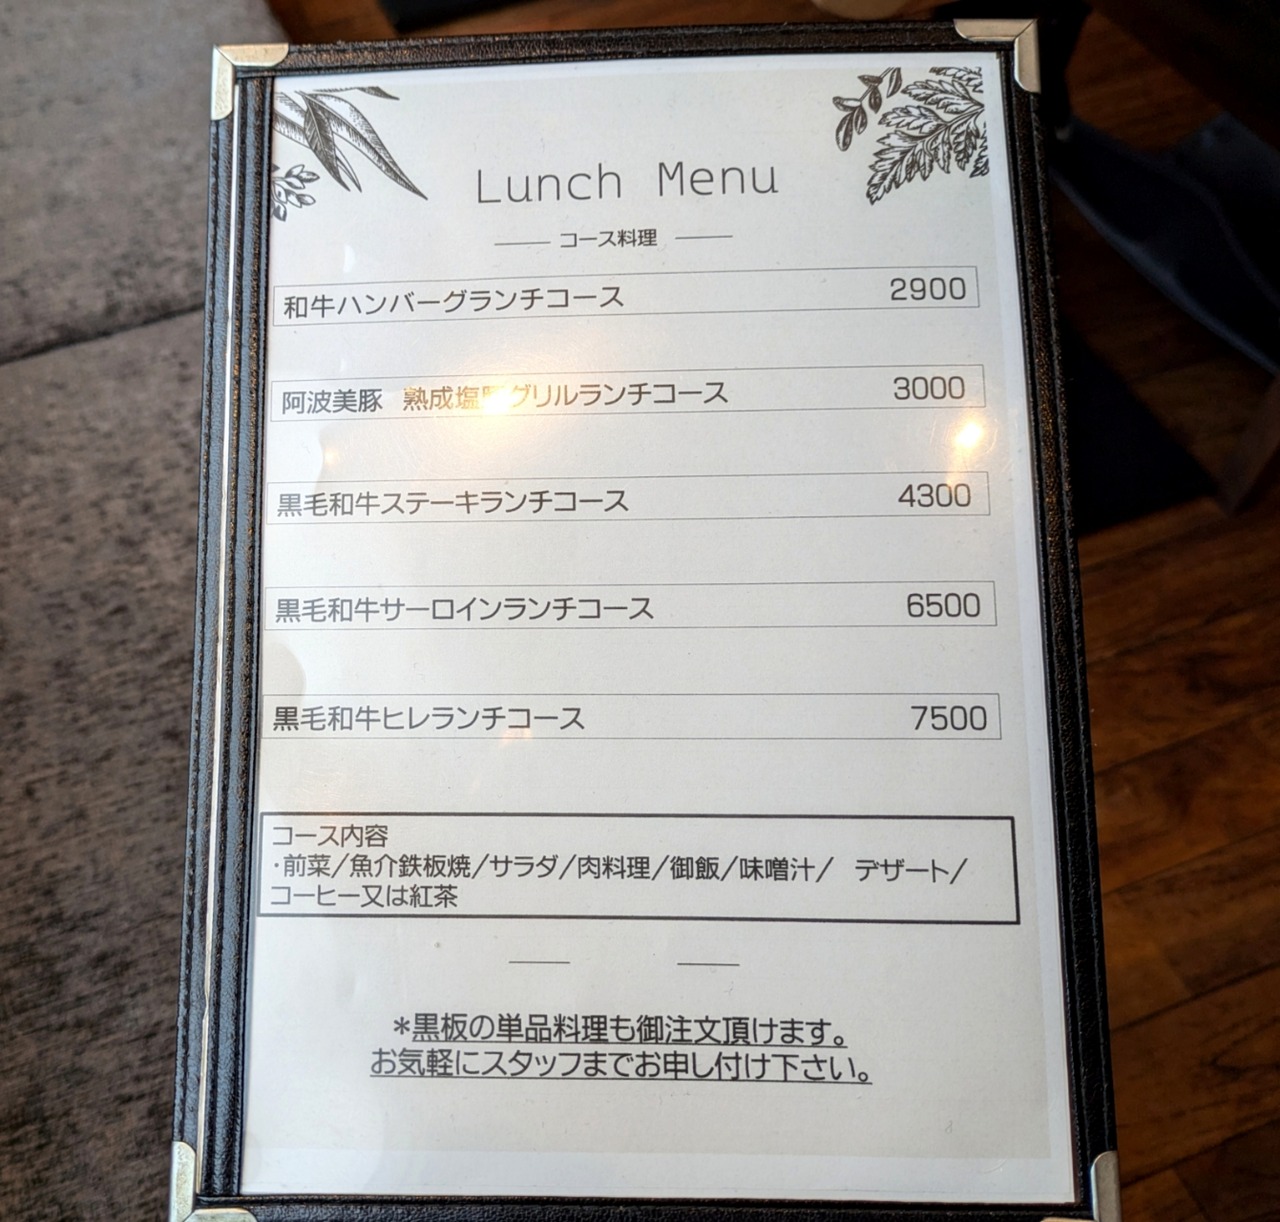 Lunch Menu
コース料理
和牛ハンバーグランチコース 2900
阿波美豚 熟成塩 グリルランチコース 3000
黒毛和牛ステーキランチコース 4300
黒毛和牛サーロインランチコース 6500
黒毛和牛ヒレランチコース 7500
コース内容
・前菜/魚介鉄板焼/サラダ/肉料理/御飯/味噌汁/ デザート/
コーヒー又は紅茶
*黒板の単品料理も御注文頂けます。
お気軽にスタッフまでお申し付け下さい。